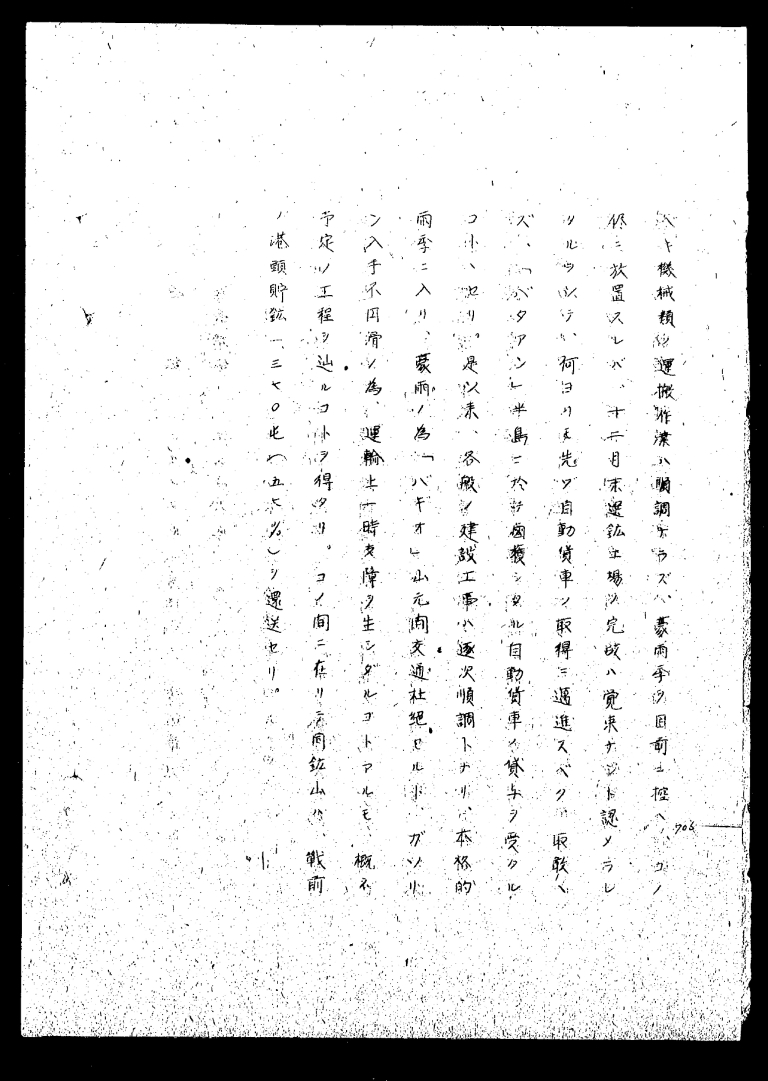 ベト機械類ノ運搬作業ハ順調ナラズ、豪雨季ヲ目前ニ控ヘ、コノ
儘ニ放置スレバ、十二月末選鉱工場ノ完成ハ覚束ナシト認メラレ
タルヲ以テ、何ヨリモ先ヅ自動貨車ノ取得ニ邁進スベク
ズ、「バタアン」半島ニ於テ鹵獲シタル自動貨車ノ貸与ヲ受クル
コトヽセリ。是以来、各般ノ建設工事ハ逐次順調トナリ、本格的
雨季ニ入リ、豪雨ノ為「バギオ」山元間交通杜絶セルト、ガソリ
ン入手不円滑ノ為、運輸上一時支障ヲ生ジタルコトアルモ、概ネ
予定ノ工程ヲ辿ルコトヲ得タリ。コノ間ニ在リテ同鉱山ハ、戦前
ノ港頭貯鉱一、三七〇屯(五七%)ヲ還送セリ。
706